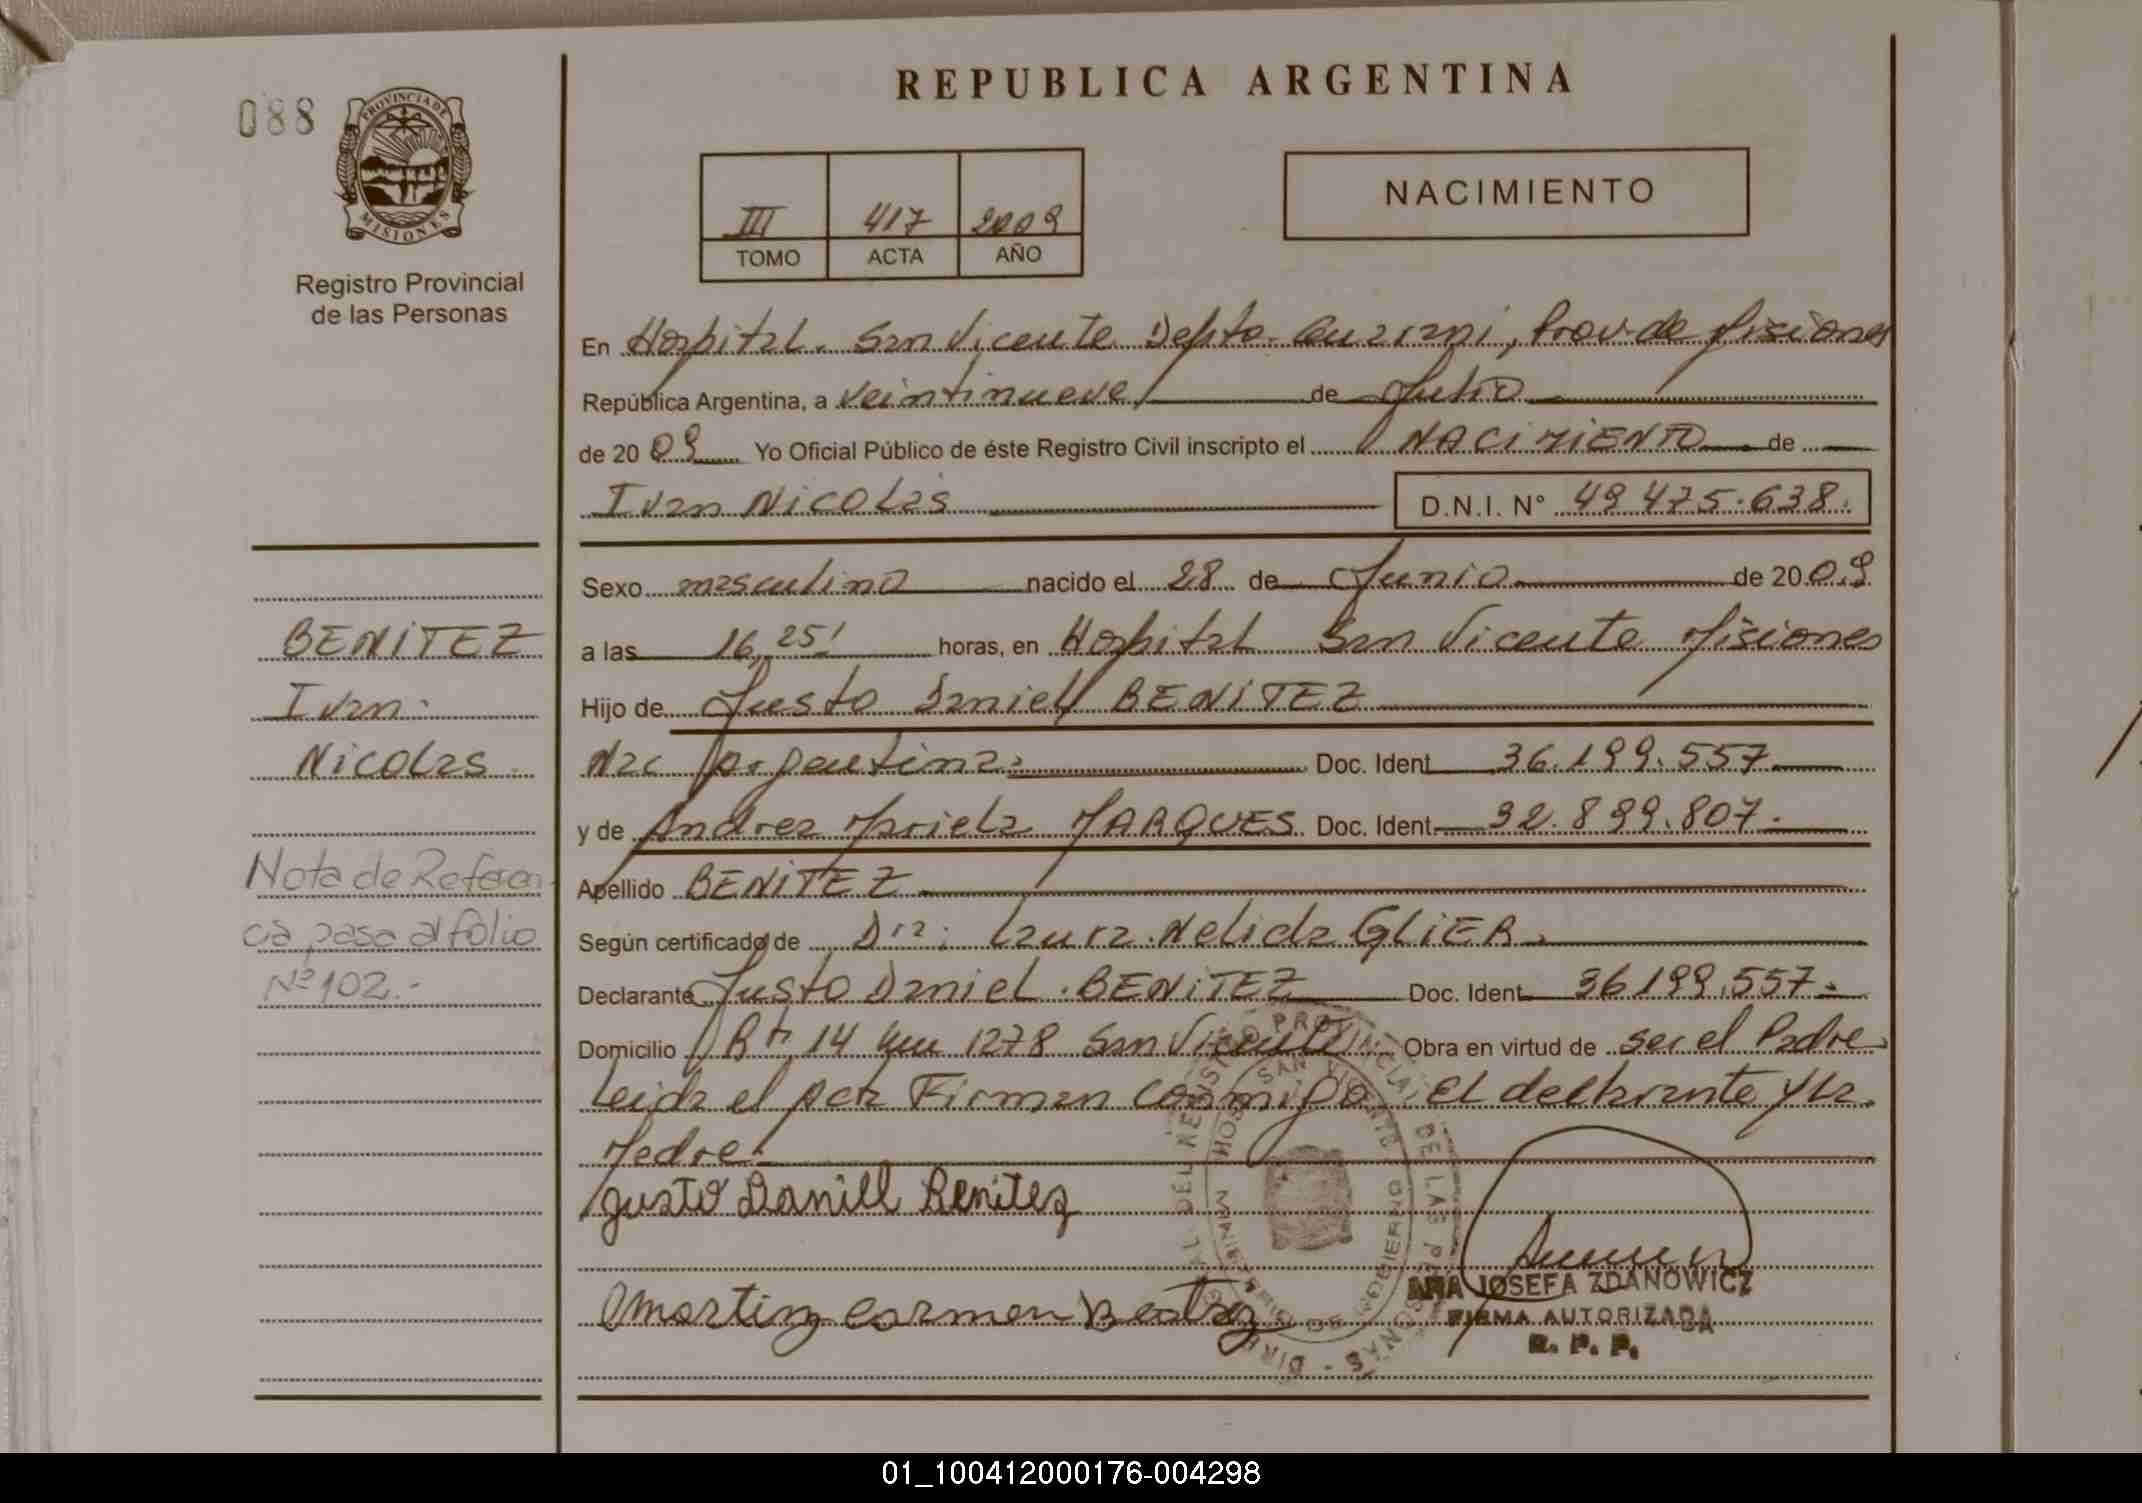 088
PROVINCIA DE
MISIONES
Registro Provincial
de las Personas
REPUBLICA ARGENTINA
III 417 2009
TOMO ACTA AÑO
NACIMIENTO
En Hospital. San Vicente Depto. Guarani, Prov. de Misiones
República Argentina, a veintinueve de Julio
de 20 09 Yo Oficial Público de éste Registro Civil inscripto el NACIMIENTO de
Ivan Nicolas D.N.I. N° 49 475.638.
Sexo masculino nacido el 28 de Junio de 20 09
a las 16,25' horas, en Hospital San Vicente Misiones
Hijo de Justo Daniel BENITEZ
Nac Argentina. Doc. Ident 36.199.557
y de Andrea Mariela MARQUES Doc. Ident 32.899.807.
Apellido BENITEZ
Según certificado de Dra: Laura Nelida GLIER.
Declarante Justo Daniel. BENITEZ Doc. Ident 36 199.557.
Domicilio Rta 14 km 1278 San Vicente Obra en virtud de ser el Padre
Leida el Acta Firman conmigo el declarante y la
Madre.
Justo Daniell Benitez
Martinz Carmen Beatriz
ANA JOSEFA ZDANOWICZ
FIRMA AUTORIZADA
R. P. P.
BENITEZ
Ivan.
Nicolas
Nota de Referen
cia pasa al folio
Nº 102.-
01_100412000176-004298